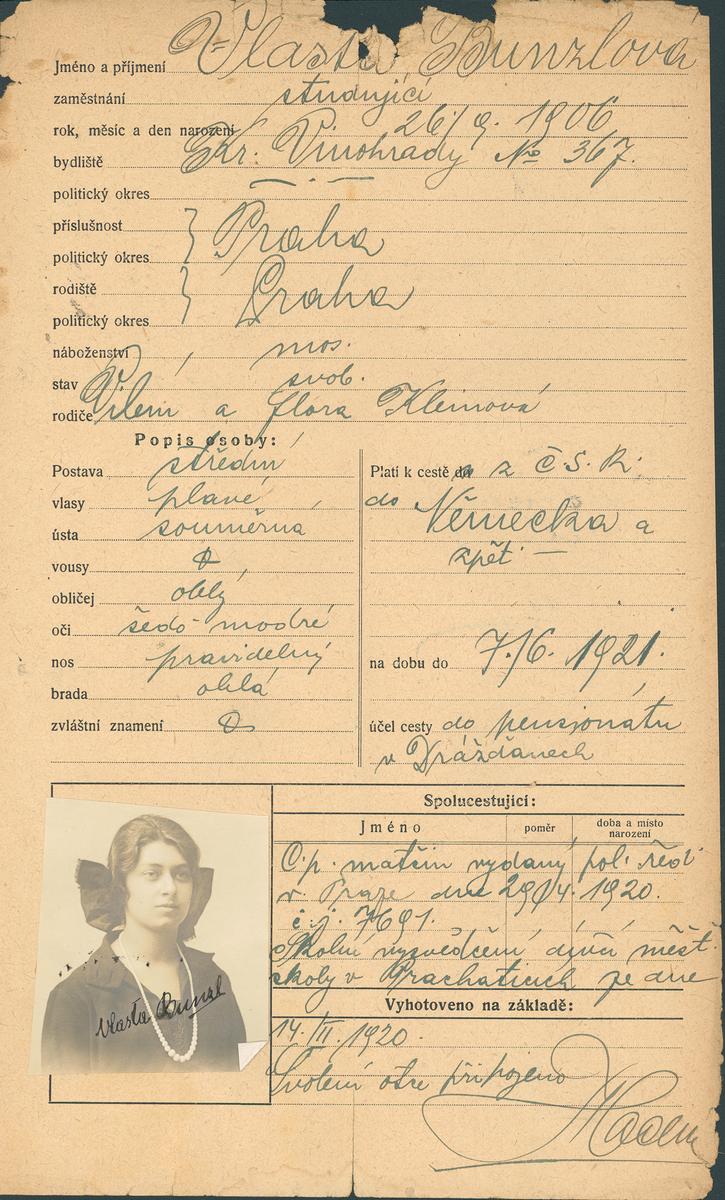 Jméno a příjmení Vlasta Bunzlová
zaměstnání studující
rok, měsíc a den narození 26/9. 1906
bydliště Kr. Vinohrady No 367.
politický okres — . —
příslušnost } Praha
politický okres
rodiště } Praha
politický okres
náboženství mos.
stav svob.
rodiče Vilém a Flora Kleinová
Popis osoby:
Postava střední
vlasy plavé
ústa souměrná
vousy
obličej oblý
oči šedo modré
nos pravidelný
brada oblá
zvláštní znamení
Platí k cestě z Č.S.R.
do Německa a
zpět —
na dobu do 7./6. 1921.
účel cesty do pensionátu
v Drážďanech
Spolucestující:
Jméno poměr doba a místo narození
C.p. matčin vydaný pol. řed.
v Praze dne 29/4. 1920.
č.j. 7691.
Školní vysvědčení dívčí měšť.
školy v Prachaticích ze dne
Vyhotoveno na základě:
14./II. 1920.
Svolení otce připojeno
Vlasta Bunzl